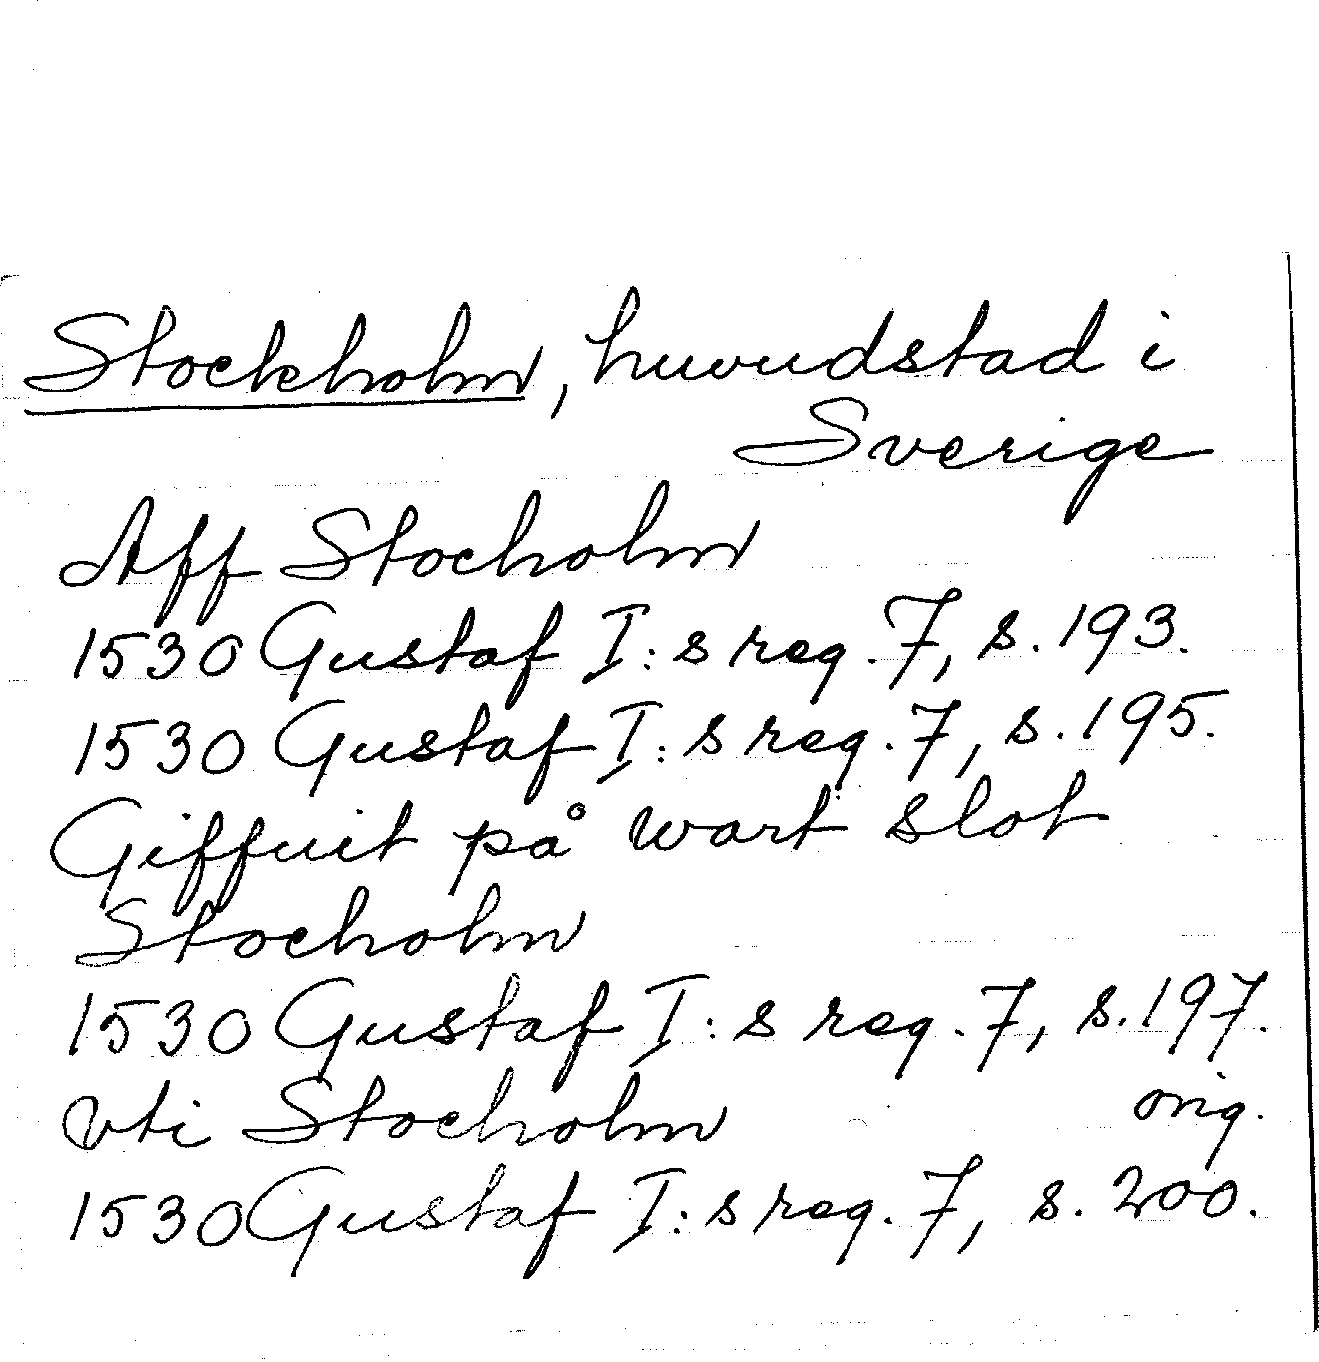 Stockholm, huvudstad i
Sverige
Aff Stocholm
1530 Gustaf I:s reg. 7, s. 193.
1530 Gustaf I:s reg. 7, s. 195.
Giffuit på wart slot
Stocholm
1530 Gustaf I:s reg. 7, s. 197.
orig.
vti Stocholm
1530 Gustaf I:s reg. 7, s. 200.